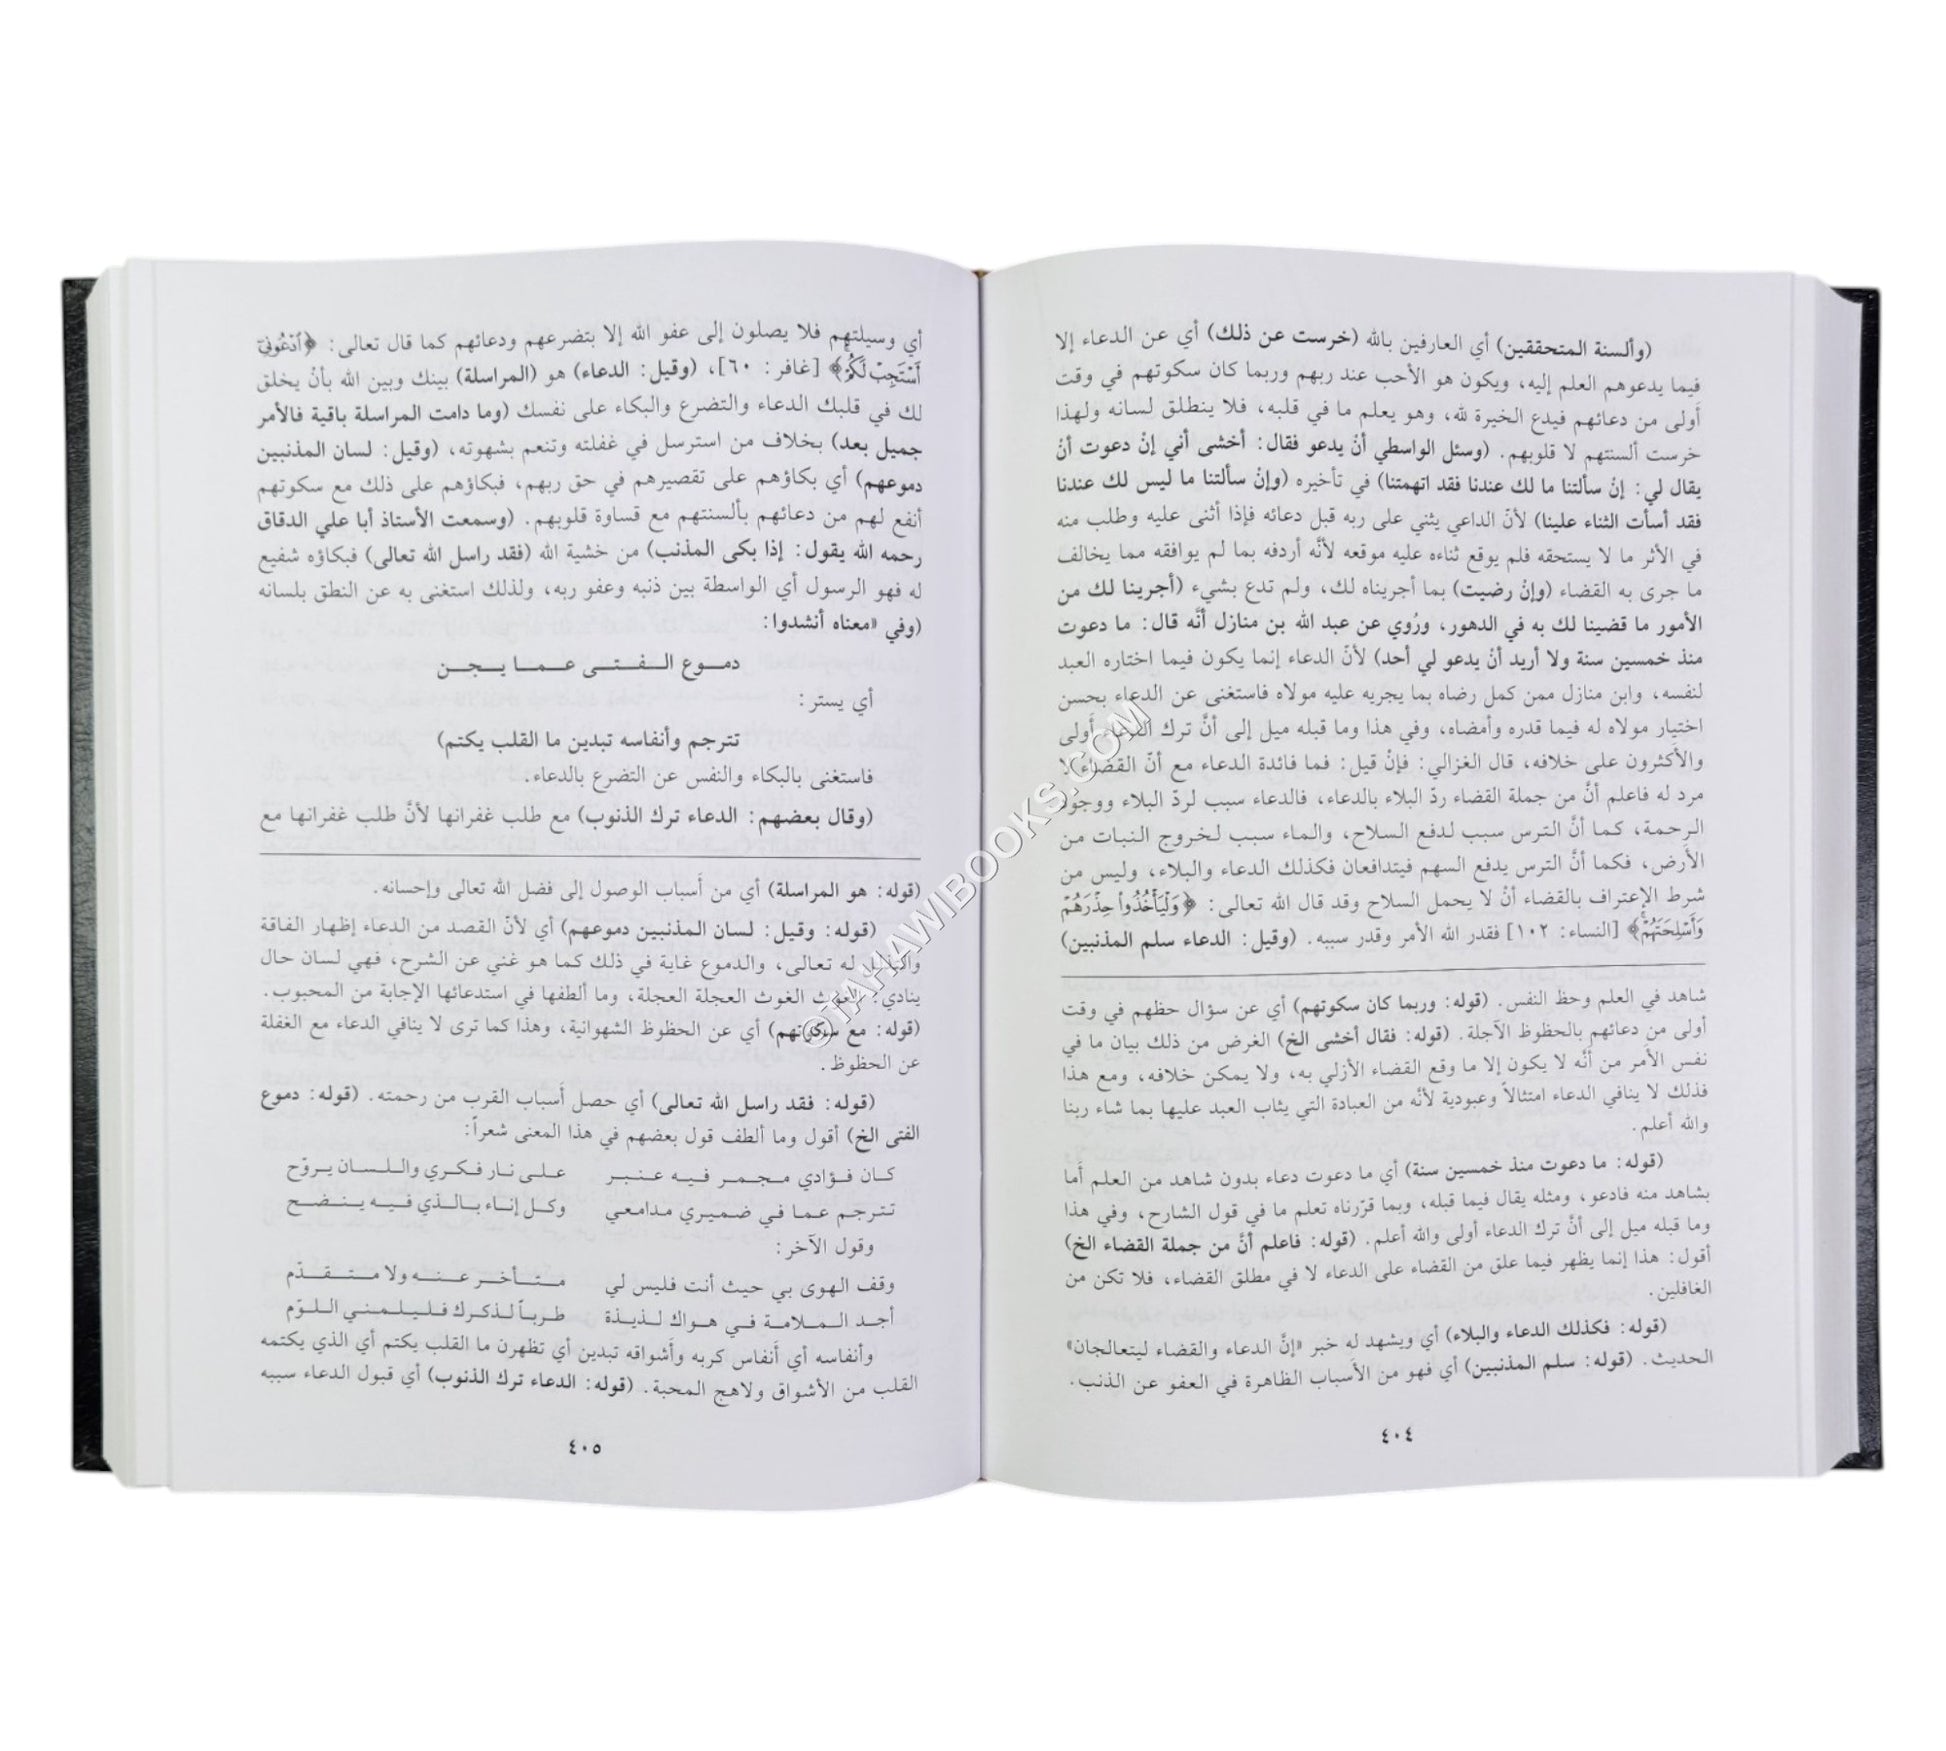 (وألسنة المتحققين) أي العارفين بالله (خرست عن ذلك) أي عن الدعاء إلا
فيما يدعوهم العلم إليه، ويكون هو الأحب عند ربهم وربما كان سكوتهم في وقت
أولى من دعائهم فيدع الخيرة لله، وهو يعلم ما في قلبه، فلا ينطلق لسانه ولهذا
خرست ألسنتهم لا قلوبهم. (وسئل الواسطي أنْ يدعو فقال: أخشى أني إنْ دعوت أنْ
يقال لي: إنْ سألتنا ما لك عندنا فقد اتهمتنا) في تأخيره (وإنْ سألتنا ما ليس لك عندنا
فقد أسأت الثناء علينا) لأنّ الداعي يثني على ربه قبل دعائه فإذا أثنى عليه وطلب منه
في الأثر ما لا يستحقه فلم يوقع ثناءه عليه موقعه لأنَّه أردفه بما لم يوافقه مما يخالف
ما جرى به القضاء (وإنْ رضيت) بما أجريناه لك، ولم تدع بشيء (أجرينا لك من
الأمور ما قضينا لك به في الدهور، ورُوي عن عبد الله بن منازل أنَّه قال: ما دعوت
منذ خمسين سنة ولا أريد أنْ يدعو لي أحد) لأنّ الدعاء إنما يكون فيما اختاره العبد
لنفسه، وابن منازل ممن كمل رضاه بما يجريه عليه مولاه فاستغنى عن الدعاء بحسن
اختيار مولاه له فيما قدره وأمضاه، وفي هذا وما قبله ميل إلى أنَّ ترك الدعاء أولى
والأكثرون على خلافه، قال الغزالي: فإنْ قيل: فما فائدة الدعاء مع أنّ القضاء لا
مرد له فاعلم أنَّ من جملة القضاء ردّ البلاء بالدعاء، فالدعاء سبب لردّ البلاء ووجود
الرحمة، كما أنَّ الترس سبب لدفع السلاح، والماء سبب لخروج النبات من
الأرض، فكما أنَّ الترس يدفع السهم فيتدافعان فكذلك الدعاء والبلاء، وليس من
شرط الإعتراف بالقضاء أنْ لا يحمل السلاح وقد قال الله تعالى: ﴿وَلْيَأْخُذُوا حِذْرَهُمْ
وَأَسْلِحَتَهُمْ﴾ [النساء: ١٠٢] فقدر الله الأمر وقدر سببه. (وقيل: الدعاء سلم المذنبين)
شاهد في العلم وحظ النفس. (قوله: وربما كان سكوتهم) أي عن سؤال حظهم في وقت
أولى من دعائهم بالحظوظ الآجلة. (قوله: فقال أخشى الخ) الغرض من ذلك بيان ما في
نفس الأمر من أنَّه لا يكون إلا ما وقع القضاء الأزلي به، ولا يمكن خلافه، ومع هذا
فذلك لا ينافي الدعاء امتثالاً وعبودية لأنَّه من العبادة التي يثاب العبد عليها بما شاء ربنا
والله أعلم.
(قوله: ما دعوت منذ خمسين سنة) أي ما دعوت دعاء بدون شاهد من العلم أما
بشاهد منه فادعو، ومثله يقال فيما قبله، وبما قرّرناه تعلم ما في قول الشارح، وفي هذا
وما قبله ميل إلى أنَّ ترك الدعاء أولى والله أعلم. (قوله: فاعلم أنَّ من جملة القضاء الخ)
أقول: هذا إنما يظهر فيما علق من القضاء على الدعاء لا في مطلق القضاء، فلا تكن من
الغافلين.
(قوله: فكذلك الدعاء والبلاء) أي ويشهد له خبر «إنَّ الدعاء والقضاء ليتعالجان»
الحديث. (قوله: سلم المذنبين) أي فهو من الأسباب الظاهرة في العفو عن الذنب.
٤٠٤
أي وسيلتهم فلا يصلون إلى عفو الله إلا بتضرعهم ودعائهم كما قال تعالى: ﴿ٱدْعُونِيٓ
أَسْتَجِبْ لَكُمْ﴾ [غافر: ٦٠]، (وقيل: الدعاء) هو (المراسلة) بينك وبين الله بأنْ يخلق
لك في قلبك الدعاء والتضرع والبكاء على نفسك (وما دامت المراسلة باقية فالأمر
جميل بعد) بخلاف من استرسل في غفلته وتنعم بشهوته، (وقيل: لسان المذنبين
دموعهم) أي بكاؤهم على تقصيرهم في حق ربهم، فبكاؤهم على ذلك مع سكوتهم
أنفع لهم من دعائهم بألسنتهم مع قساوة قلوبهم. (وسمعت الأستاذ أبا علي الدقاق
رحمه الله يقول: إذا بكى المذنب) من خشية الله (فقد راسل الله تعالى) فبكاؤه شفيع
له فهو الرسول أي الواسطة بين ذنبه وعفو ربه، ولذلك استغنى به عن النطق بلسانه
(وفي «معناه أنشدوا:
دموع الفتى عما يجن
أي يستر:
تترجم وأنفاسه تبدين ما القلب يكتم)
فاستغنى بالبكاء والنفس عن التضرع بالدعاء.
(وقال بعضهم: الدعاء ترك الذنوب) مع طلب غفرانها لأنَّ طلب غفرانها مع
(قوله: هو المراسلة) أي من أسباب الوصول إلى فضل الله تعالى وإحسانه.
(قوله: وقيل: لسان المذنبين دموعهم) أي لأنّ القصد من الدعاء إظهار الفاقة
والتذلل له تعالى، والدموع غاية في ذلك كما هو غني عن الشرح، فهي لسان حال
ينادي: الغوث الغوث العجلة العجلة، وما ألطفها في استدعائها الإجابة من المحبوب.
(قوله: مع سكوتهم) أي عن الحظوظ الشهوانية، وهذا كما ترى لا ينافي الدعاء مع الغفلة
عن الحظوظ.
(قوله: فقد راسل الله تعالى) أي حصل أسباب القرب من رحمته. (قوله: دموع
الفتى الخ) أقول وما ألطف قول بعضهم في هذا المعنى شعراً:
كان فؤادي مجمر فيه عنبر على نار فكري واللسان يروّح
تترجم عما في ضميري مدامعي وكل إناء بالذي فيه ينضح
وقول الآخر:
وقف الهوى بي حيث أنت فليس لي متأخر عنه ولا متقدّم
أجد الملامة في هواك لذيذة طرباً لذكرك فليلمني اللوّم
وأنفاسه أي أنفاس كربه وأشواقه تبدين أي تظهرن ما القلب يكتم أي الذي يكتمه
القلب من الأشواق ولاهج المحبة. (قوله: الدعاء ترك الذنوب) أي قبول الدعاء سببه
٤٠٥
©TAHAWIBOOKS.COM